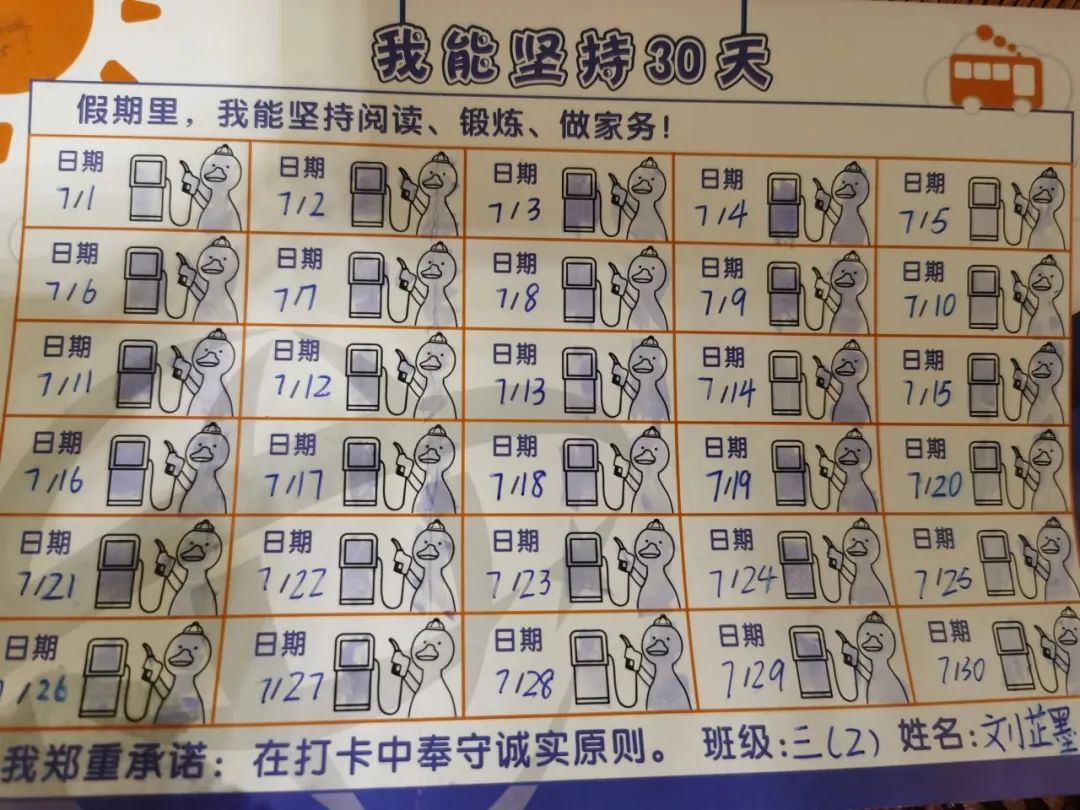 我能坚持30天
假期里，我能坚持阅读、锻炼、做家务！
日期 日期 日期 日期 日期
7/1 7/2 7/3 7/4 7/5
日期 日期 日期 日期 日期
7/6 7/7 7/8 7/9 7/10
日期 日期 日期 日期 日期
7/11 7/12 7/13 7/14 7/15
日期 日期 日期 日期 日期
7/16 7/17 7/18 7/19 7/20
日期 日期 日期 日期 日期
7/21 7/22 7/23 7/24 7/25
日期 日期 日期 日期 日期
/26 7/27 7/28 7/29 7/30
我郑重承诺：在打卡中奉守诚实原则。 班级:三(2) 姓名:刘芷墨